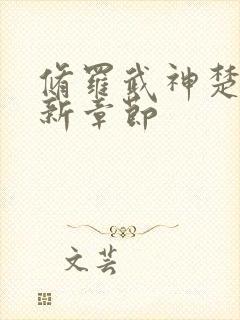 脩羅武神楚
新章節
文芸